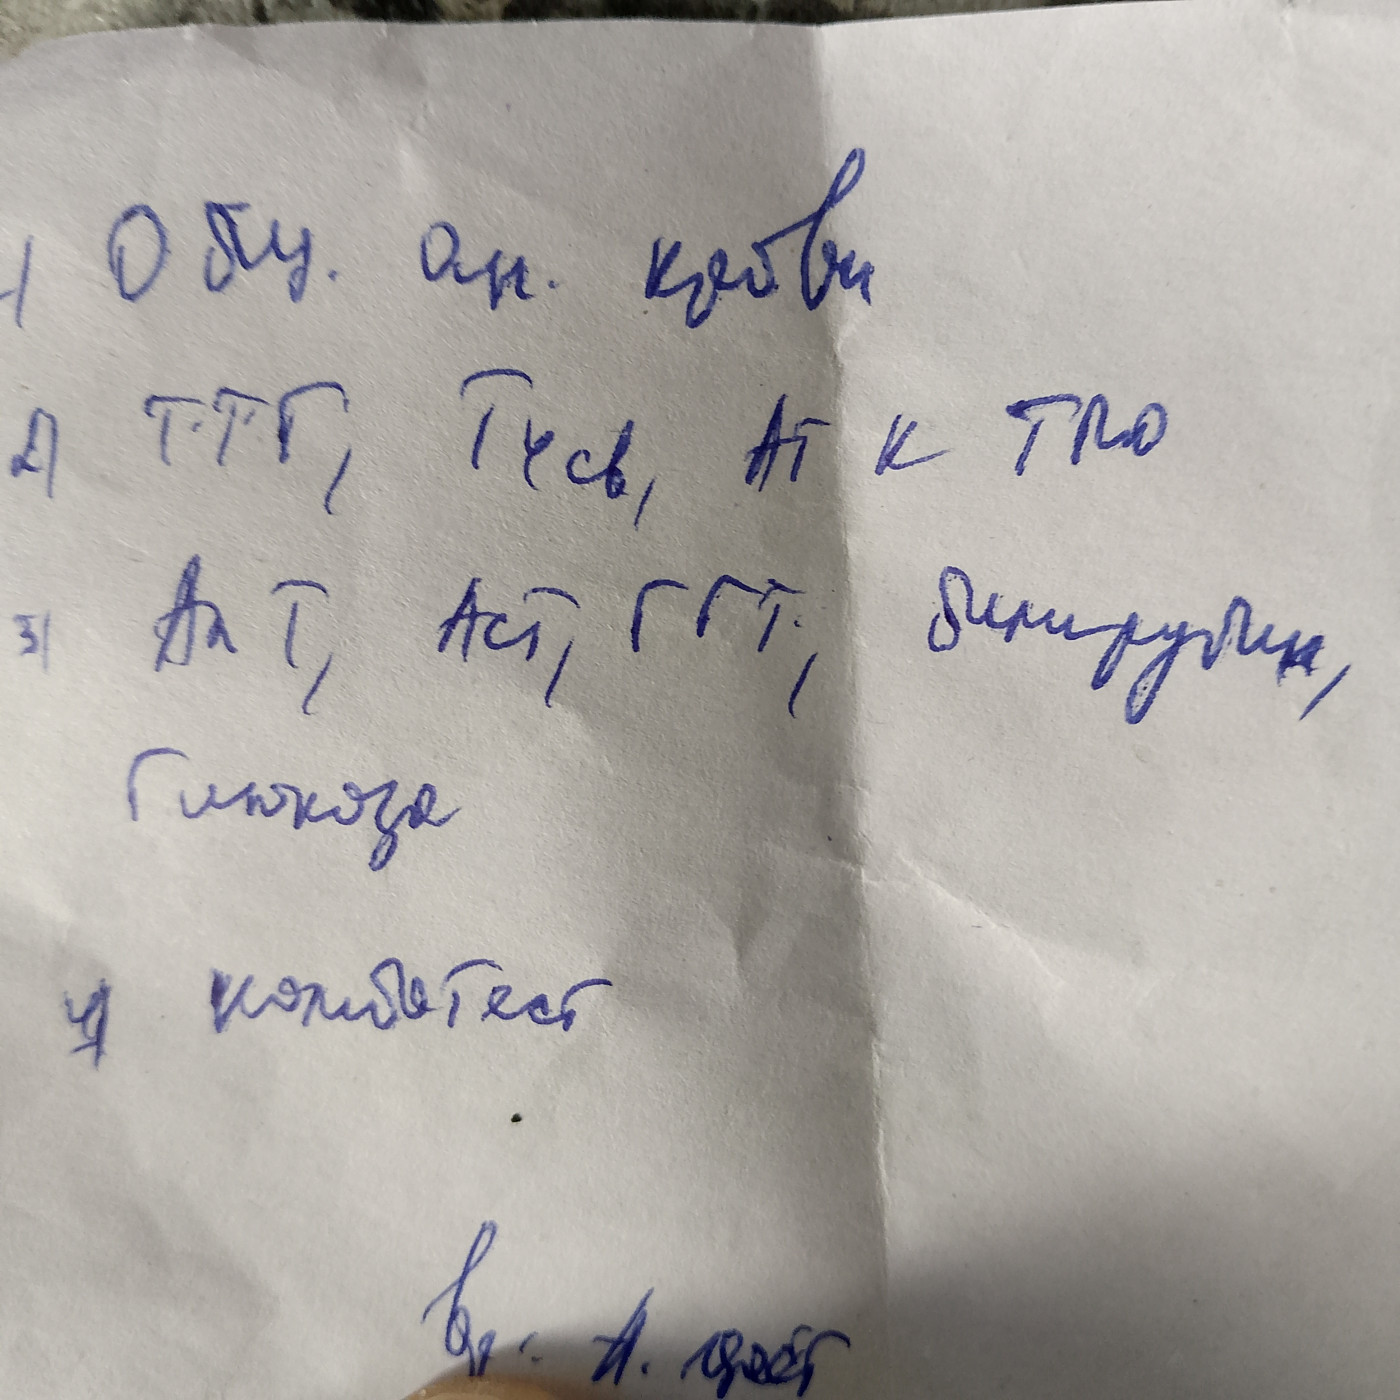 1) Общ. ан. крови
2) Т.Т.Г, Т4св, АТ к ТПО
3) АлТ, АсТ, ГГТ, билирубин,
Глюкоза
4) комботест
Вр. А.